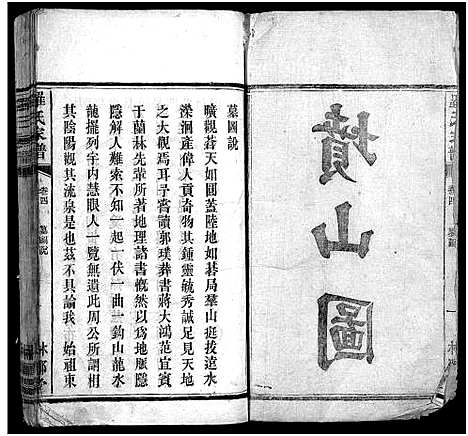 墳山圖
墓圖說
曠觀蒼天如圓蓋陸地如碁局羣山挺拔遠水
瀠洄產偉人貢奇物其鍾靈毓秀誠足見天地
之大觀焉耳予嘗讀郭璞葬書蔣大鴻范宜賓
于蘭林先輩所著地理諸書慨然以爲地脈隱
隱解人難索不知一起一伏一曲一鈎山龍水
龍擺列宇内慧眼人一覽無遺此周公所謂相
其陰陽觀其流泉是也兹不具論我 始祖東
羅氏家譜
卷四
墓圖說